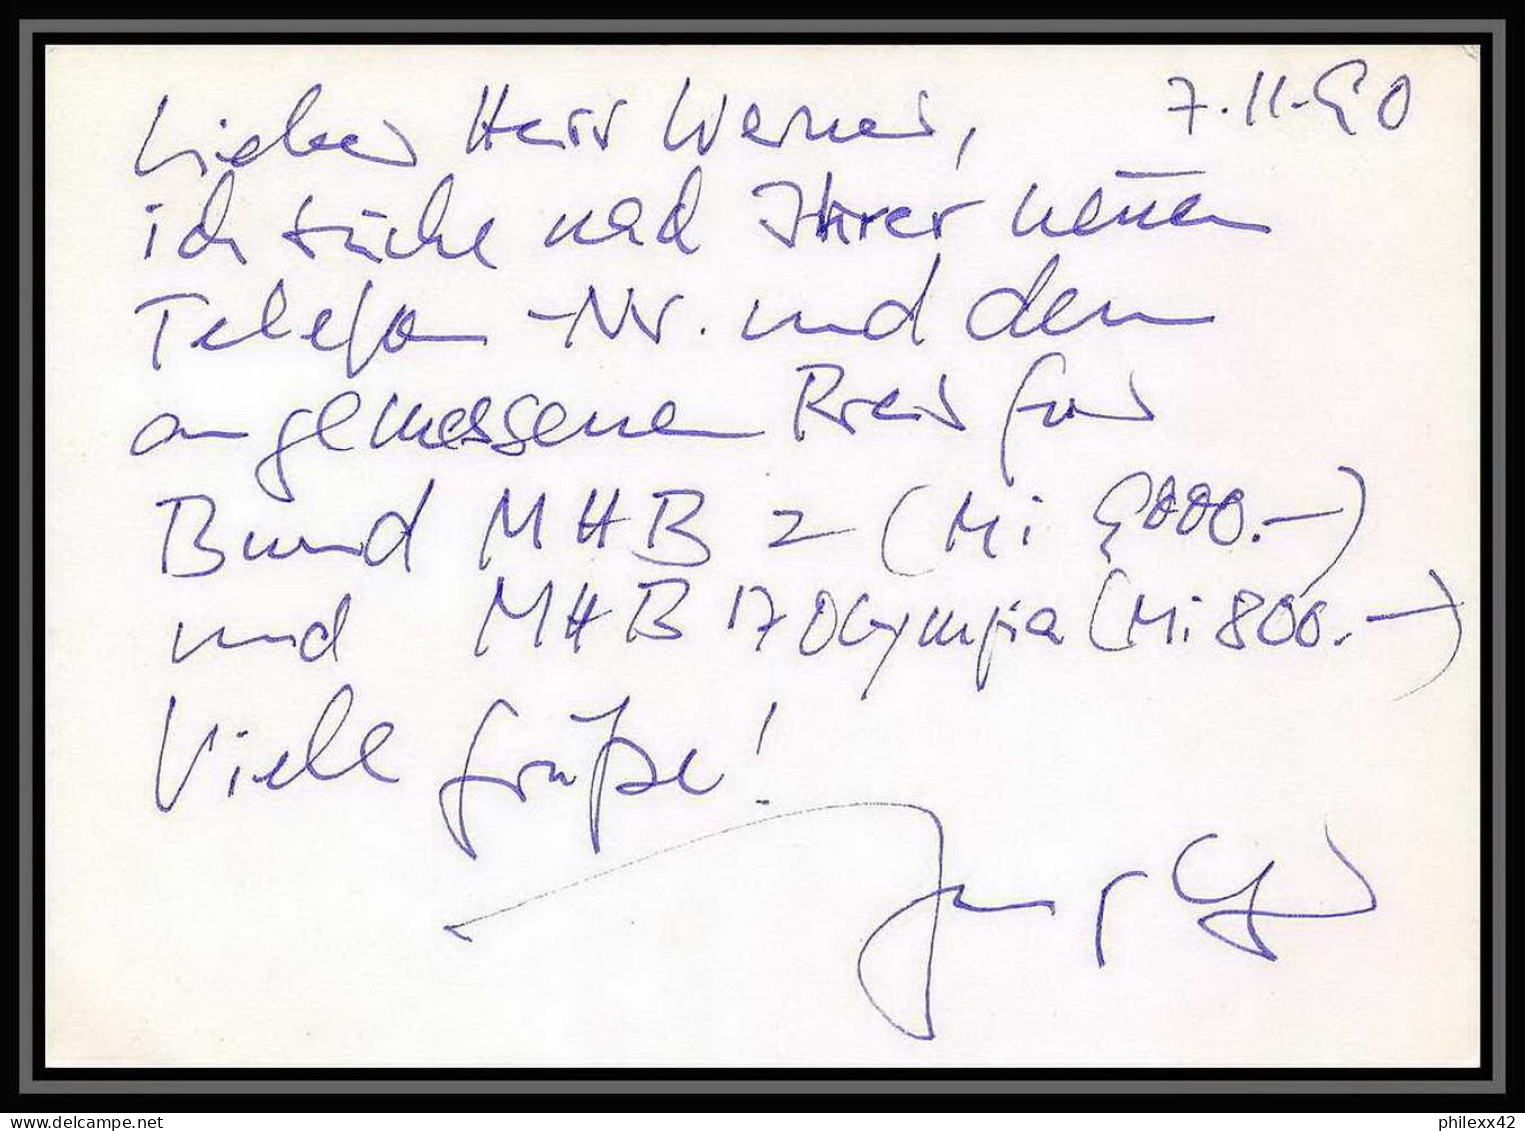 Lieber Herr Werner, 7.11.90
ich suche nach Ihrer neuen
Telefon-Nr. und dem
angemessenen Preis für
Bund MHB 2 (Mi 9000.—)
und MHB 17 Olympia (Mi 800.—)
Viele Grüße!
philexx42